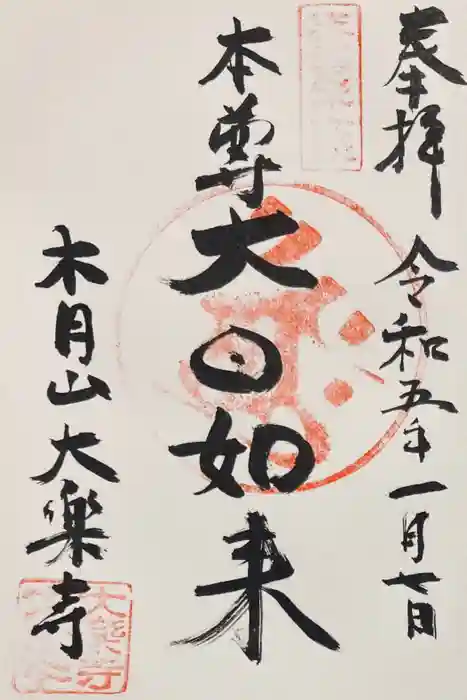 奉拝 令和五年一月七日
本尊大日如来
木月山大楽寺